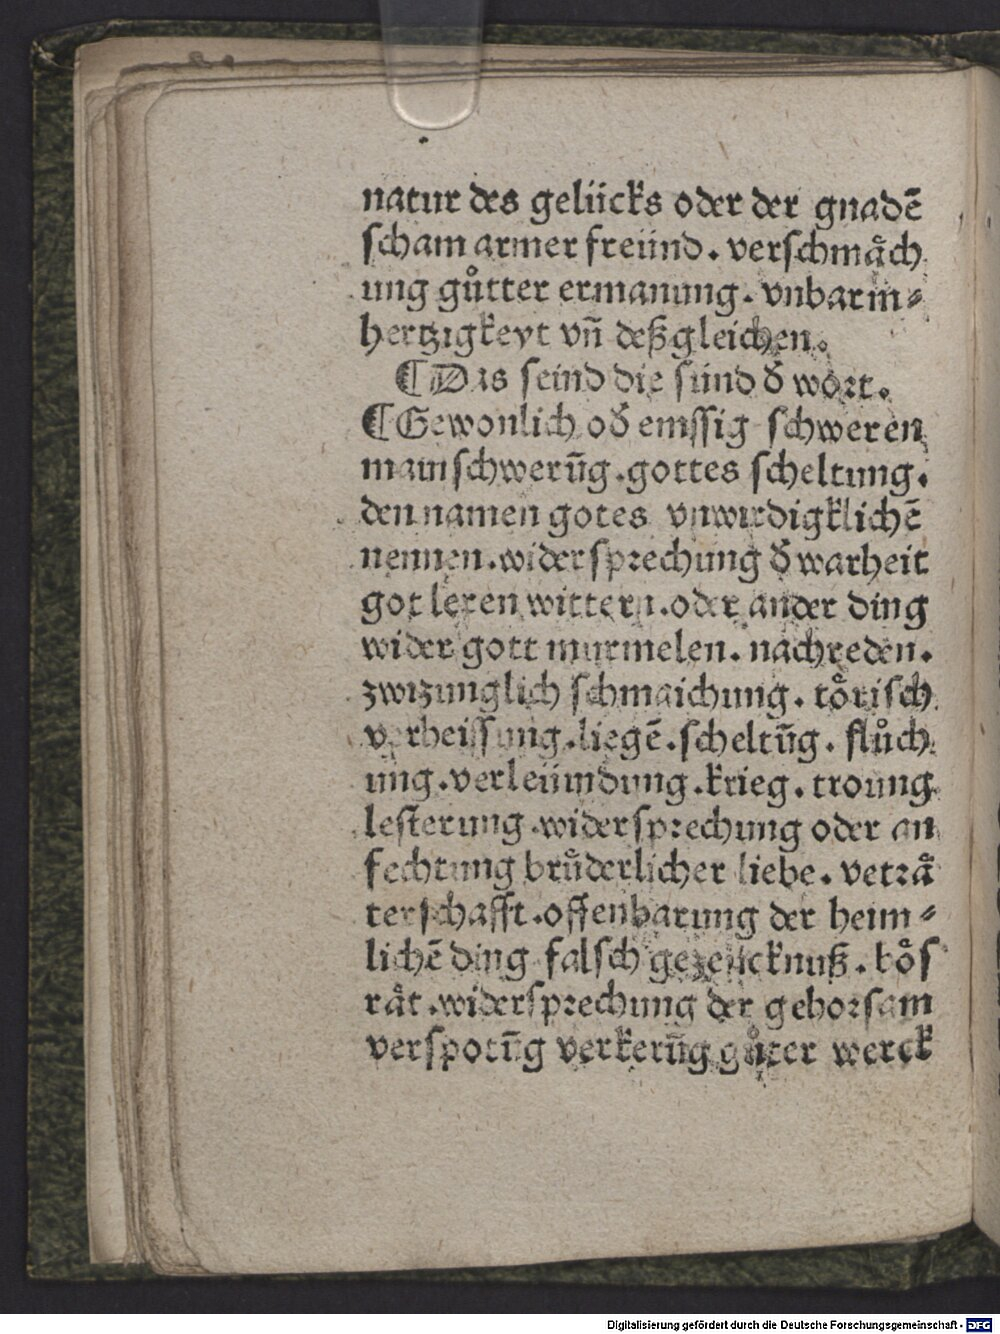 natur des gelücks oder der gnadē
scham armer freünd. verschmåch
ung gůtter ermanung. vnbarm⸗
hertzigkeyt vn̄ deßgleichen.
¶ Das seind die sünd d̄ wort.
¶ Gewonlich od̄ emssig schweren
mainschwerūg. gottes scheltung.
den namen gotes vnwirdigklichē
nennen. widersprechung d̄ warheit
got leren wittern. oder ander ding
wider gott murmelen. nachreden.
zwizunglich schmaichung. tôrisch
verheissung. liegē. scheltūg. flůch
ung. verleümdung. krieg. troung
lesterung. widersprechung oder an
fechtung brůderlicher liebe. vetrå
terschafft. offenbarung der heim⸗
lichē ding falsch gezeücknuß. bôs
råt. widersprechung der gehorsam
verspotūg verkerūg gůter werck
Digitalisierung gefördert durch die Deutsche Forschungsgemeinschaft - DFG